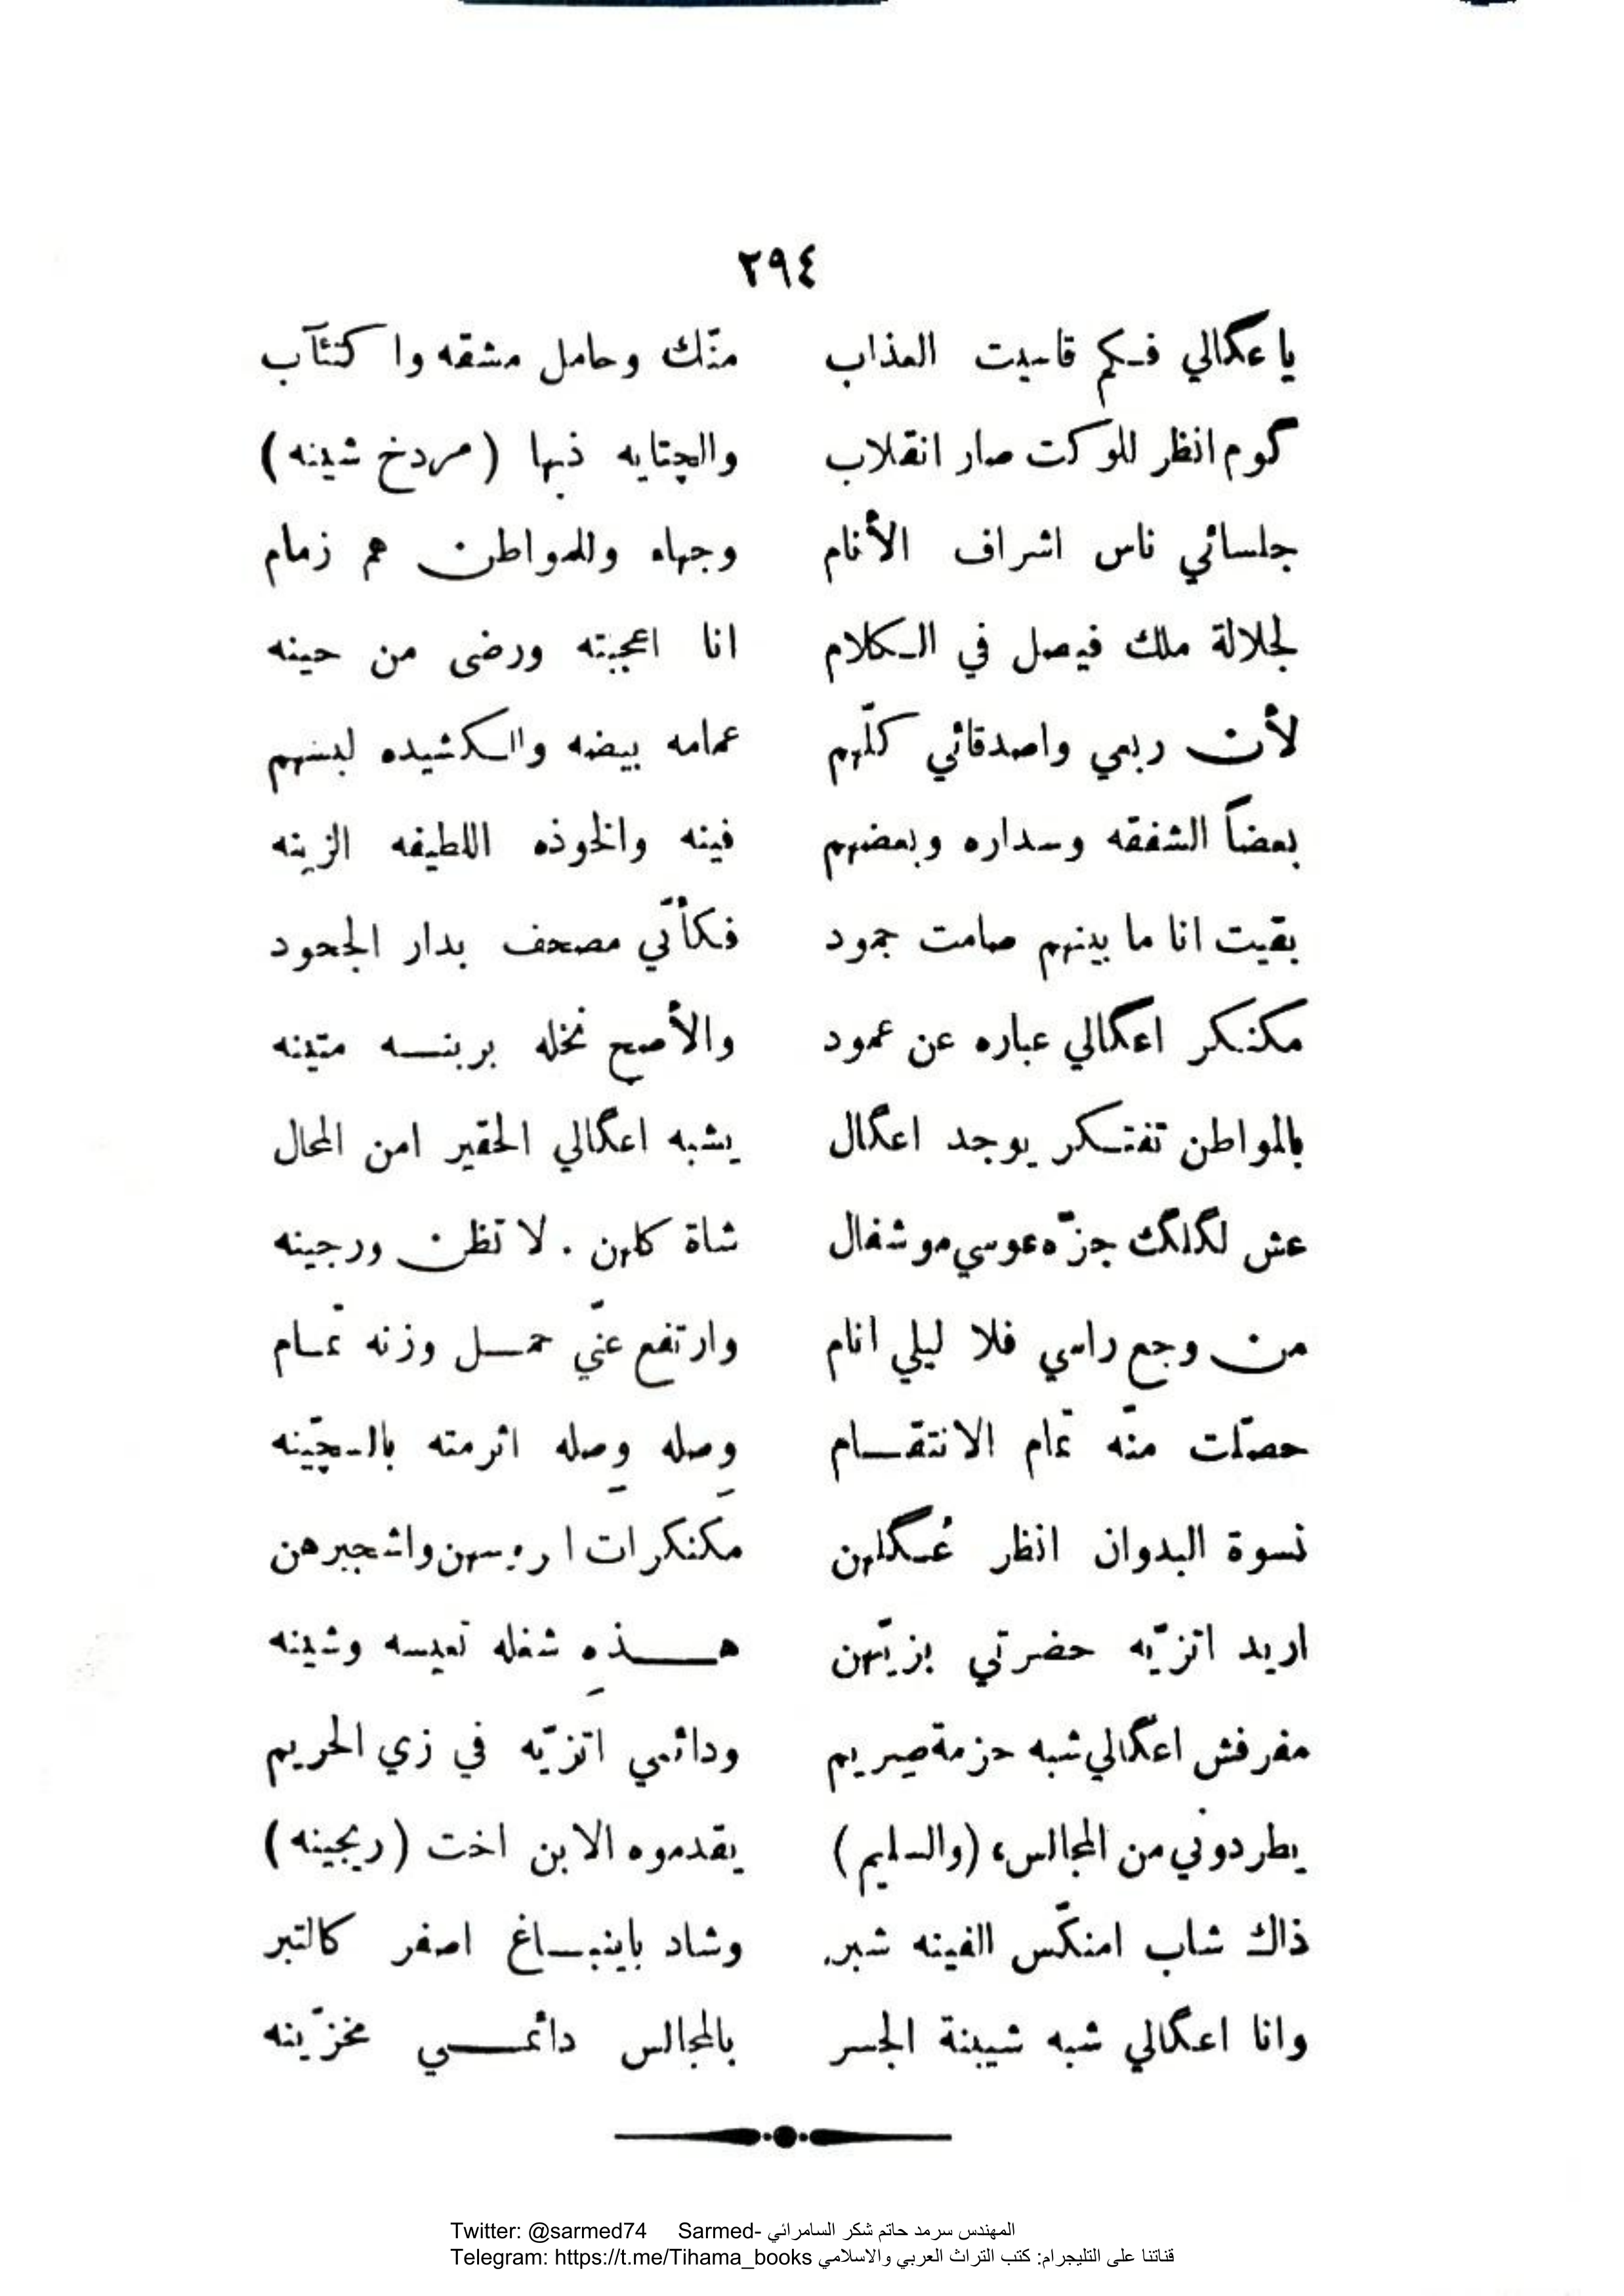 ٢٩٤
ياعگالي فكم قاسيت العذاب منّك وحامل مشقه واكتئآب
گوم انظر للوكت صار انقلاب والچتايه ذبها (مردخ شينه)
جلسائي ناس اشراف الأنام وجهاه وللمواطن هم زمام
لجلالة ملك فيصل في الكلام انا اعجبته ورضى من حينه
لأن ربعي واصدقائي كلّهم عمامه بيضه والكشيده لبسهم
بعضاً الشفقه وسداره وبعضهم فينه والخوذه اللطيفه الزينه
بقيت انا ما بينهم صامت جمود فكأنّي مصحف بدار الجحود
مكنكر اعگالي عباره عن عمود والأصح نخله بربنسه متينه
بالمواطن تفتكر يوجد اعگال يشبه اعگالي الحقير امن المحال
عش لگلگ جزّه عوسي مو شغال شاة كلهن . لا تظن ورجينه
من وجع راسي فلا ليلي انام وارتفع عنّي حمل وزنه تمام
حصّلت منّه تمام الانتقام وصله وصله اثرمته بالچّينه
نسوة البدوان انظر عُگلهن مكنكرات اروسهن واشجبرهن
اريد اتزيّه حضرتي بزيّهن هذهِ شغله تعيسه وشينه
مفرفش اعگالي شبه حزمة صريم ودائمي اتزيّه في زي الحريم
يطردوني من المجالس، (والسليم) يقدموه الابن اخت (ريجينه)
ذاك شاب امنكّس الفينه شبر. وشاد باينباغ اصفر كالتبر
وانا اعگالي شبه شيبنة الجسر بالمجالس دائمي مخزّينه
Twitter: @sarmed74 Sarmed- المهندس سرمد حاتم شكر السامرائي
Telegram: https://t.me/Tihama_books قناتنا على التليجرام: كتب التراث العربي والاسلامي